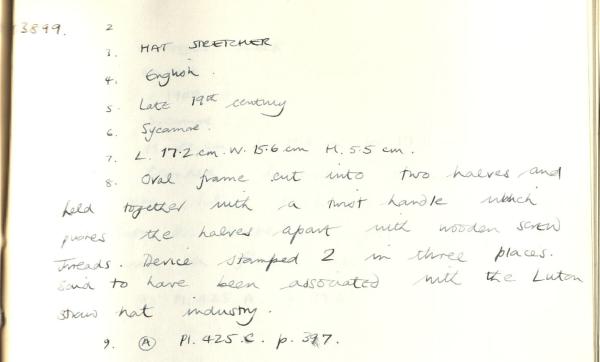 3899. 2
3. HAT STRETCHER
4. English.
5. Late 19th century
6. Sycamore.
7. L. 17.2 cm. W. 15.6 cm H. 5.5 cm.
8. Oval frame cut into two halves and
held together with a twist handle which
pushes the halves apart with wooden screw
threads. Device stamped 2 in three places.
Said to have been associated with the Luton
straw hat industry.
9. A Pl. 425. C. p. 397.